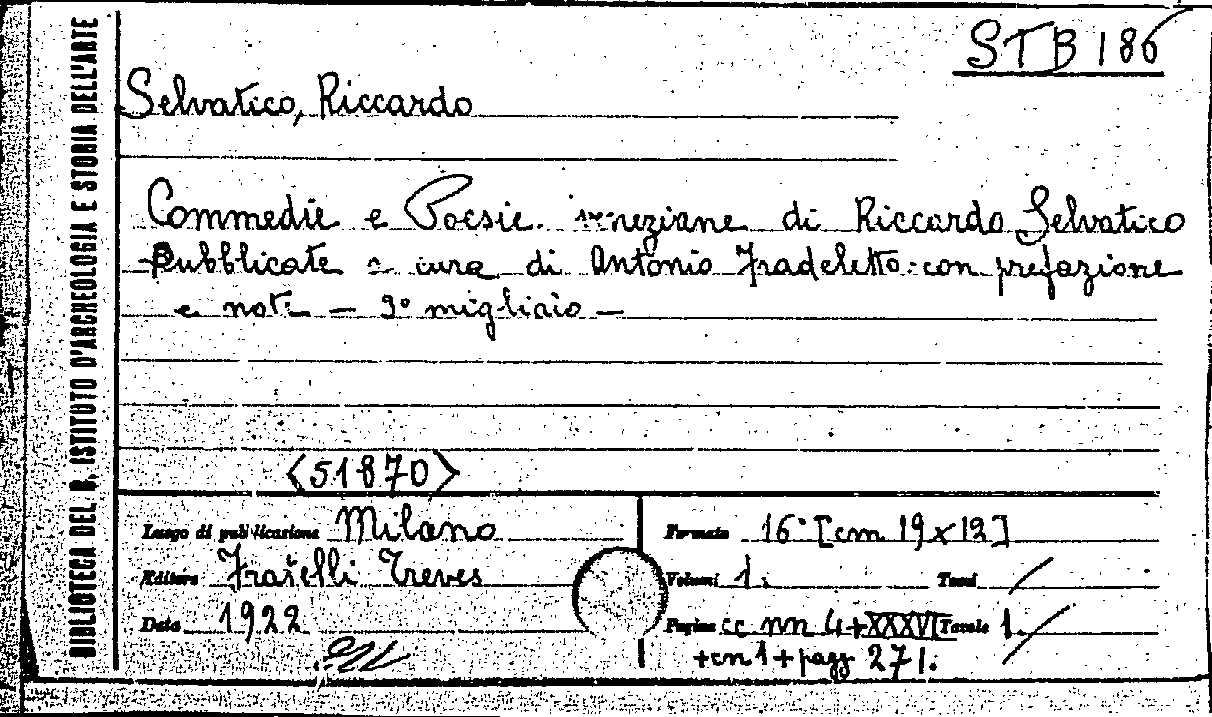 STB 186
BIBLIOTECA DEL R. ISTITUTO D'ARCHEOLOGIA E STORIA DELL'ARTE
Selvatico, Riccardo
Commedie e Poesie veneziane di Riccardo Selvatico
Pubblicate a cura di Antonio Fradeletto con prefazione
e note — 3° migliaio —
<51870>
Luogo di pubblicazione Milano
Editore Fratelli Treves
Data 1922
Formato 16° [cm 19 x 12]
Volumi 1. Tomi /
Pagine cc nn 4+XXXVI Tavole 1. /
+cn 1 + pagg 271.